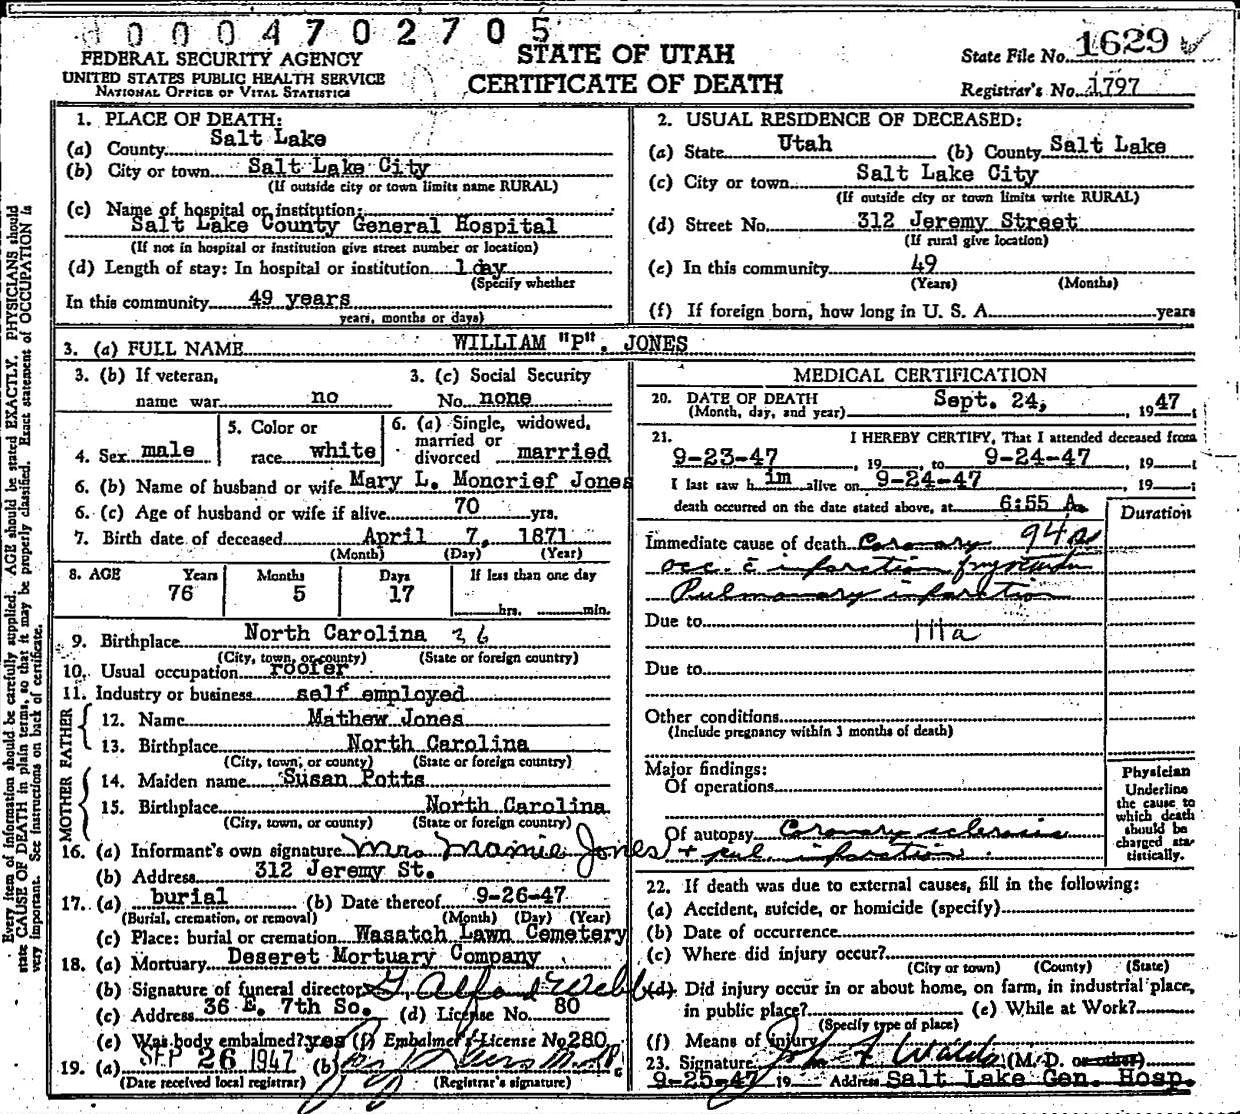 0004702705
FEDERAL SECURITY AGENCY
UNITED STATES PUBLIC HEALTH SERVICE
NATIONAL OFFICE OF VITAL STATISTICS
STATE OF UTAH
CERTIFICATE OF DEATH
State File No. 1629
Registrar's No. 1797
Every item of information should be carefully supplied. AGE should be stated EXACTLY. PHYSICIANS should
state CAUSE OF DEATH in plain terms, so that it may be properly classified. Exact statement of OCCUPATION is
very important. See instructions on back of certificate.
1. PLACE OF DEATH:
(a) County Salt Lake
(b) City or town Salt Lake City
(If outside city or town limits name RURAL)
(c) Name of hospital or institution:
Salt Lake County General Hospital
(If not in hospital or institution give street number or location)
(d) Length of stay: In hospital or institution 1 day
(Specify whether
In this community 49 years
years, months or days)
2. USUAL RESIDENCE OF DECEASED:
(a) State Utah (b) County Salt Lake
(c) City or town Salt Lake City
(If outside city or town limits write RURAL)
(d) Street No. 312 Jeremy Street
(If rural give location)
(e) In this community 49
(Years) (Months)
(f) If foreign born, how long in U. S. A. years
3. (a) FULL NAME WILLIAM "P". JONES
3. (b) If veteran, 3. (c) Social Security
name war no No. none
4. Sex male
5. Color or
race white
6. (a) Single, widowed,
married or
divorced married
6. (b) Name of husband or wife Mary L. Moncrief Jones
6. (c) Age of husband or wife if alive 70 yrs.
7. Birth date of deceased April 7, 1871
(Month) (Day) (Year)
8. AGE Years Months Days If less than one day
76 5 17 hrs. min.
9. Birthplace North Carolina 36
(City, town, or county) (State or foreign country)
10. Usual occupation roofer
11. Industry or business self employed
FATHER
12. Name Mathew Jones
13. Birthplace North Carolina
(City, town, or county) (State or foreign country)
MOTHER
14. Maiden name Susan Potts
15. Birthplace North Carolina
(City, town, or county) (State or foreign country)
16. (a) Informant's own signature Mrs Mamie Jones
(b) Address 312 Jeremy St.
17. (a) burial (b) Date thereof 9-26-47
(Burial, cremation, or removal) (Month) (Day) (Year)
(c) Place: burial or cremation Wasatch Lawn Cemetery
18. (a) Mortuary Deseret Mortuary Company
(b) Signature of funeral director Alford Webb
(c) Address 36 E. 7th So. (d) License No. 80
(e) Was body embalmed? yes (f) Embalmer's License No 280
19. (a) SEP 26 1947 (b)
(Date received local registrar) (Registrar's signature)
MEDICAL CERTIFICATION
20. DATE OF DEATH Sept. 24, 1947
(Month, day, and year)
21. I HEREBY CERTIFY, That I attended deceased from
9-23-47, 19 , to 9-24-47, 19 ;
I last saw him alive on 9-24-47, 19 ;
death occurred on the date stated above, at 6:55 A.
Duration
Immediate cause of death Coronary 94a
occ. c infarction
Pulmonary infarction
Due to 111a
Due to
Other conditions
(Include pregnancy within 3 months of death)
Major findings:
Of operations
Of autopsy Coronary sclerosis
+ pul. infarction.
Physician
Underline
the cause to
which death
should be
charged sta-
tistically.
22. If death was due to external causes, fill in the following:
(a) Accident, suicide, or homicide (specify)
(b) Date of occurrence
(c) Where did injury occur?
(City or town) (County) (State)
(d) Did injury occur in or about home, on farm, in industrial place,
in public place? (e) While at Work?
(Specify type of place)
(f) Means of injury
23. Signature (M. D. or other)
9-25-47 19 Address Salt Lake Gen. Hosp.